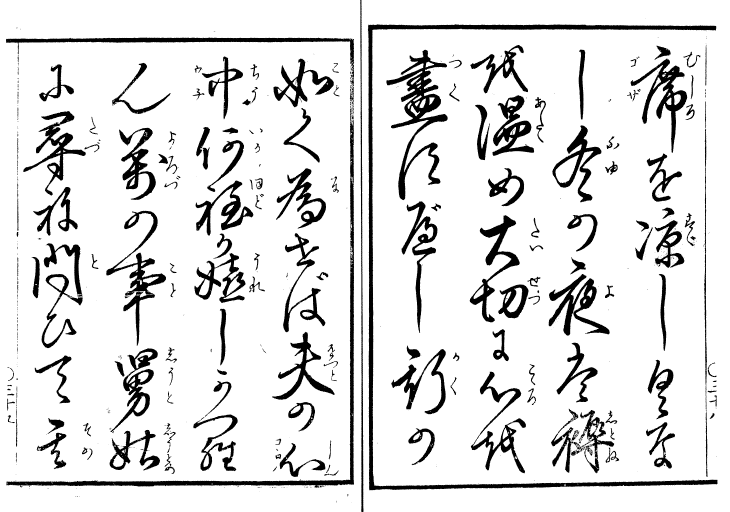 席を凉しくな
し冬の夜は褥
を温め大切に心を
盡すべし斯の
〇三十八
如く為せば夫の心
中何程か嬉しから
ん萬の事舅姑
に尋ね問ひて其
〇三十九